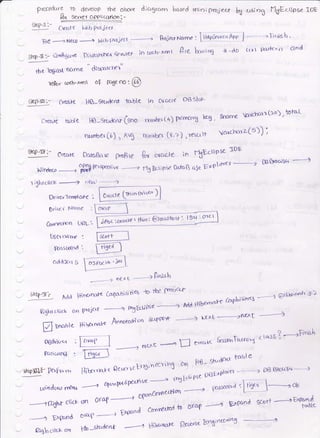 procedure to develop the above diagram based mini project by using MyEclipse IDE
As Server application:-
step-1:- Create web project
File → New → web project → ProjectName: HBServletApp → Finish.
step-2:- Configure DispatcherServlet in web.xml file having *.do url pattern and
the logical name "dispatcher"
refer web.xml of page no: 68
step-3:- Create HB_Student table in Oracle DBs/w.
create table HB_Student (sno number(4) primary key, Sname varchar2(20), total
number(6), Avg number(8,2), result varchar2(5));
step-4:- Create DataBase profile for oracle in MyEclipse IDE
window → open perspective → MyEclipse DataBase Explorer → DB Browser →
rightclick → new →
DriverTemplate: Oracle (Thin Driver)
Driver Name: orap
Connection URL: jdbc:oracle:thin:@localhost:1521:orcl
Username: scott
Password: tiger
add JARs ojdbc14.jar
→ next → finish
step-5:- Add hibernate capabilities to the project
Rightclick on project → MyEclipse → Add Hibernate Capabilities → Hibernate 3.2
☑ Enable Hibernate Annotation support → next → next →
DBDriver: orap
Password: tiger
→ next → ☐ create SessionFactory class? → Finish
step-6:- Perform Hibernate Reverse Engineering on HB_Student table
window menu → open perspective → MyEclipse DB Explorer → DB Browser →
→ Right click on orap → open connection → password: tiger → ok
→ Expand orap → Expand Connected to orap → Expand scott → Expand table
Right click on HB_Student → Hibernate Reverse Engineering →